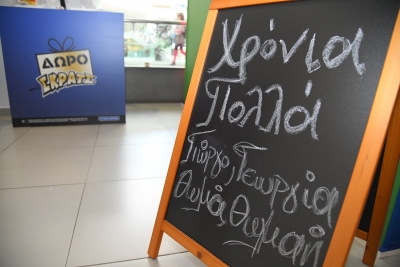 ΔΩΡΟ
ΣΚΡΑΤΣ
Χρόνια
Πολλά
Γιώργο, Γεωργία
Θωμά, Θωμαή